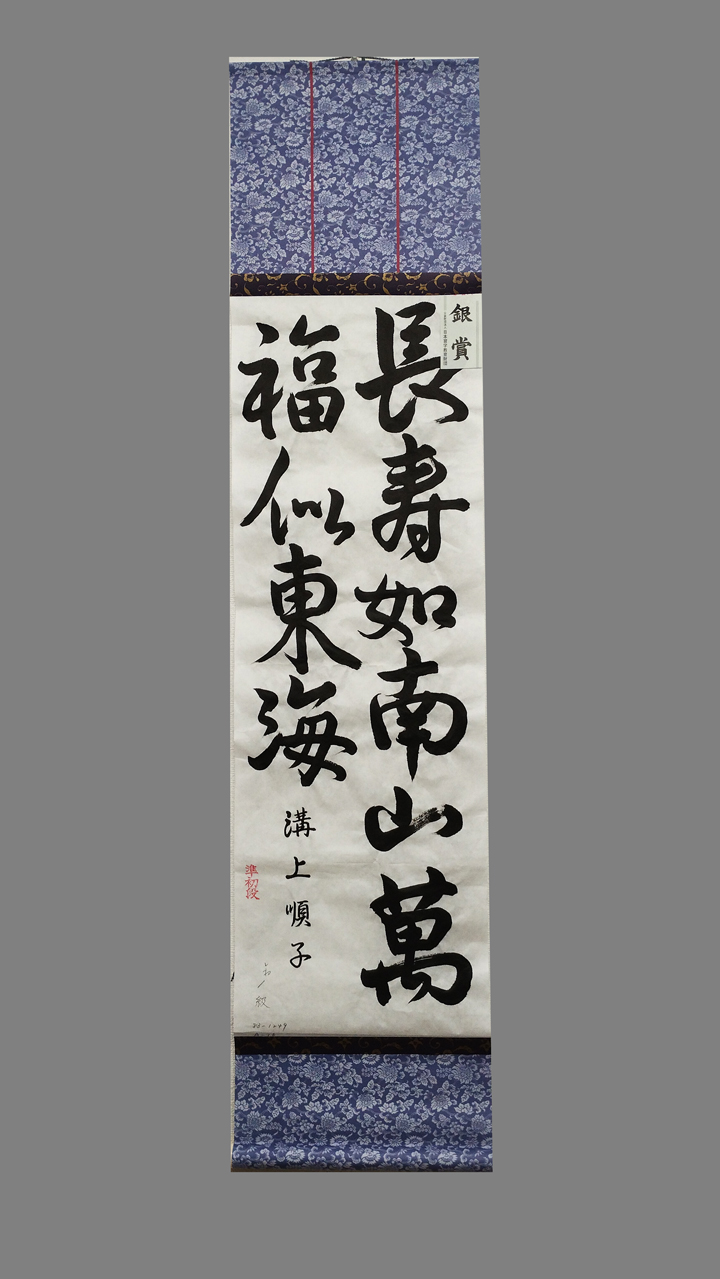 長寿如南山萬
福似東海
溝上順子
準初段
銀賞